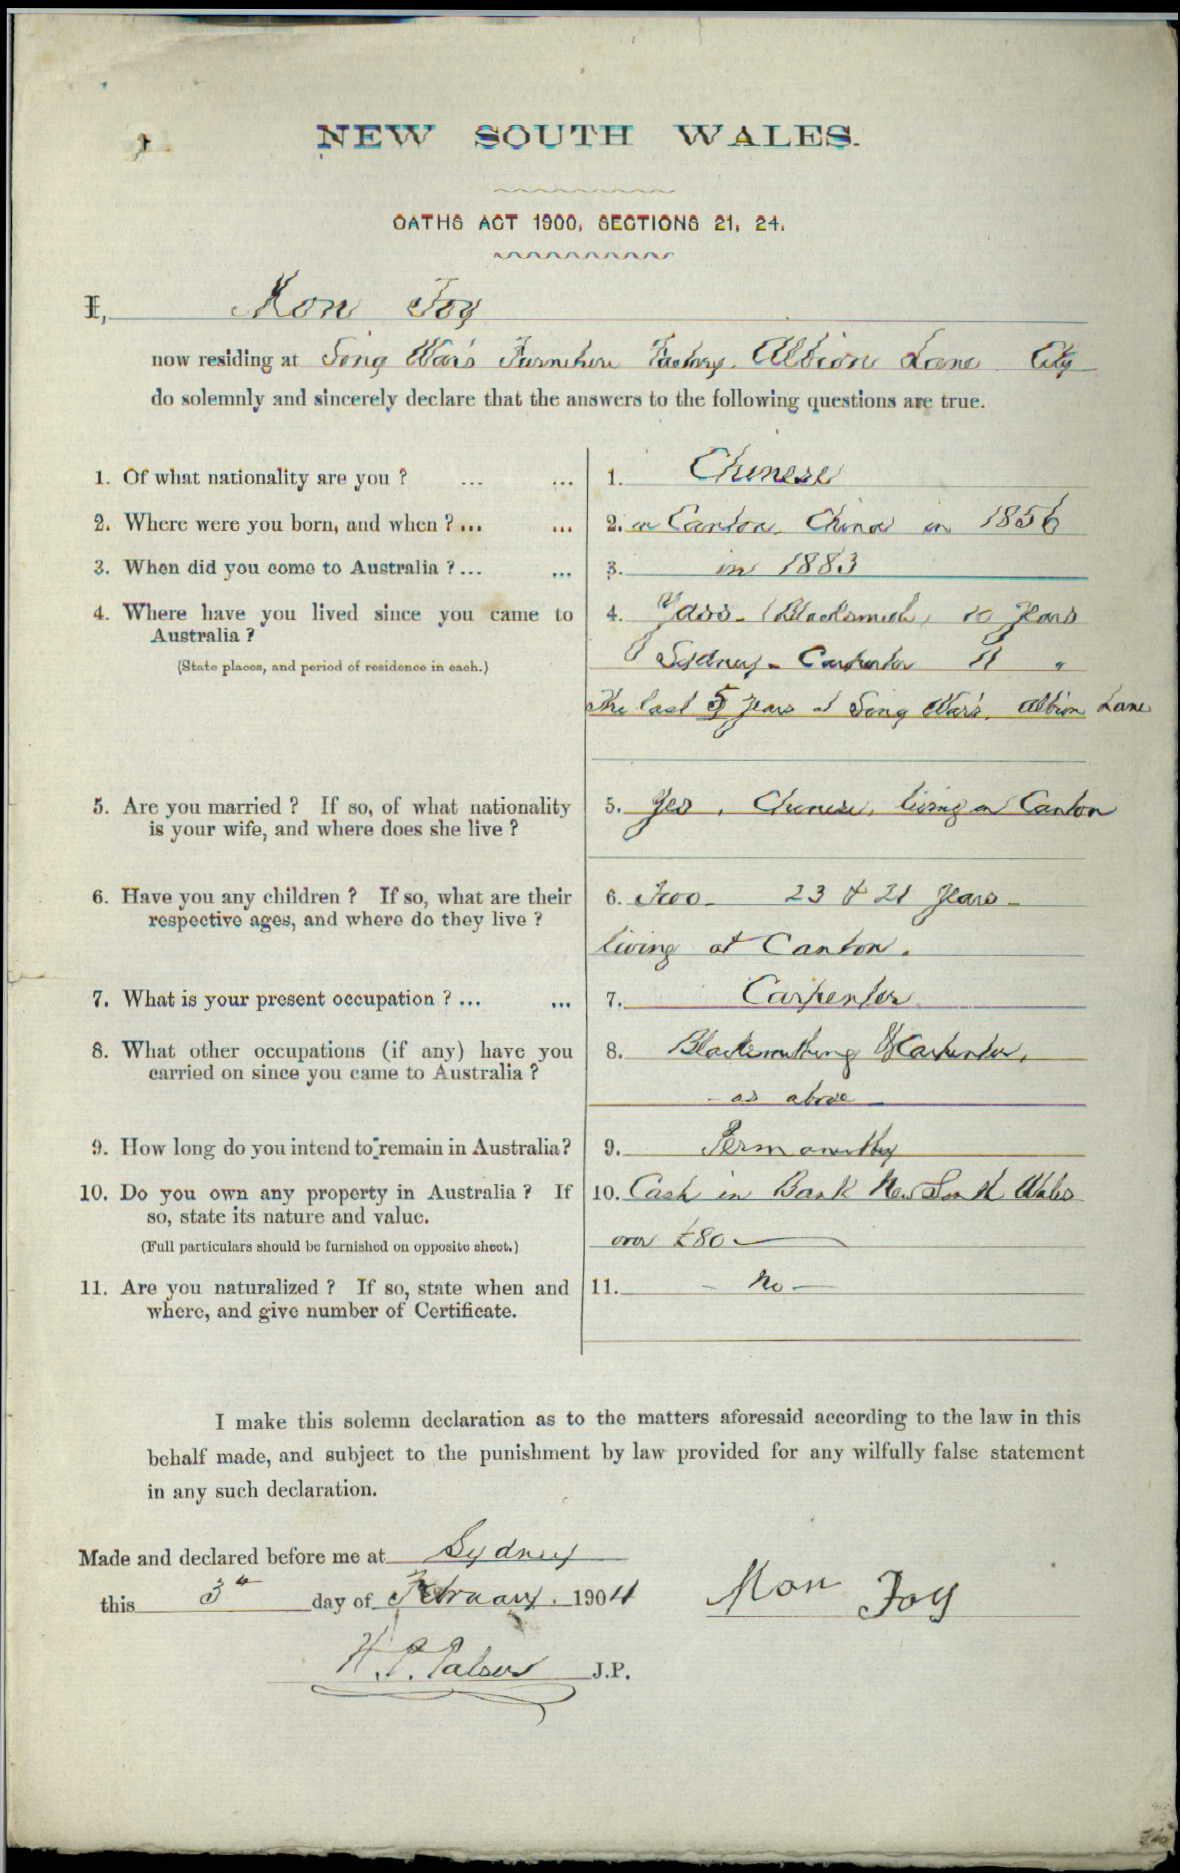 NEW SOUTH WALES.
OATHS ACT 1900, SECTIONS 21, 24.
I, Mon Joy
now residing at Song War's Furniture Factory. Albion Lane City
do solemnly and sincerely declare that the answers to the following questions are true.
1. Of what nationality are you ? ... ... 1. Chinese
2. Where were you born, and when ? ... ... 2. in Canton, China in 1856
3. When did you come to Australia ? ... ... 3. in 1883
4. Where have you lived since you came to 4. Yass - (Blacksmith, 10 years
Australia ?
(State places, and period of residence in each.) Sydney - Carpenter 11 "
The last 5 years at Song War's. Albion Lane
5. Are you married ? If so, of what nationality 5. Yes, Chinese, living in Canton
is your wife, and where does she live ?
6. Have you any children ? If so, what are their 6. Two - 23 & 21 years -
respective ages, and where do they live ?
living at Canton.
7. What is your present occupation ? ... ... 7. Carpenter
8. What other occupations (if any) have you 8. Blacksmithing & Carpenter,
carried on since you came to Australia ?
- as above -
9. How long do you intend to remain in Australia? 9. Permanently
10. Do you own any property in Australia ? If 10. Cash in Bank New South Wales
so, state its nature and value.
(Full particulars should be furnished on opposite sheet.) over £80 -
11. Are you naturalized ? If so, state when and 11. - No -
where, and give number of Certificate.
I make this solemn declaration as to the matters aforesaid according to the law in this
behalf made, and subject to the punishment by law provided for any wilfully false statement
in any such declaration.
Made and declared before me at Sydney
this 3rd day of February. 1904 Mon Joy
H. P. J.P.